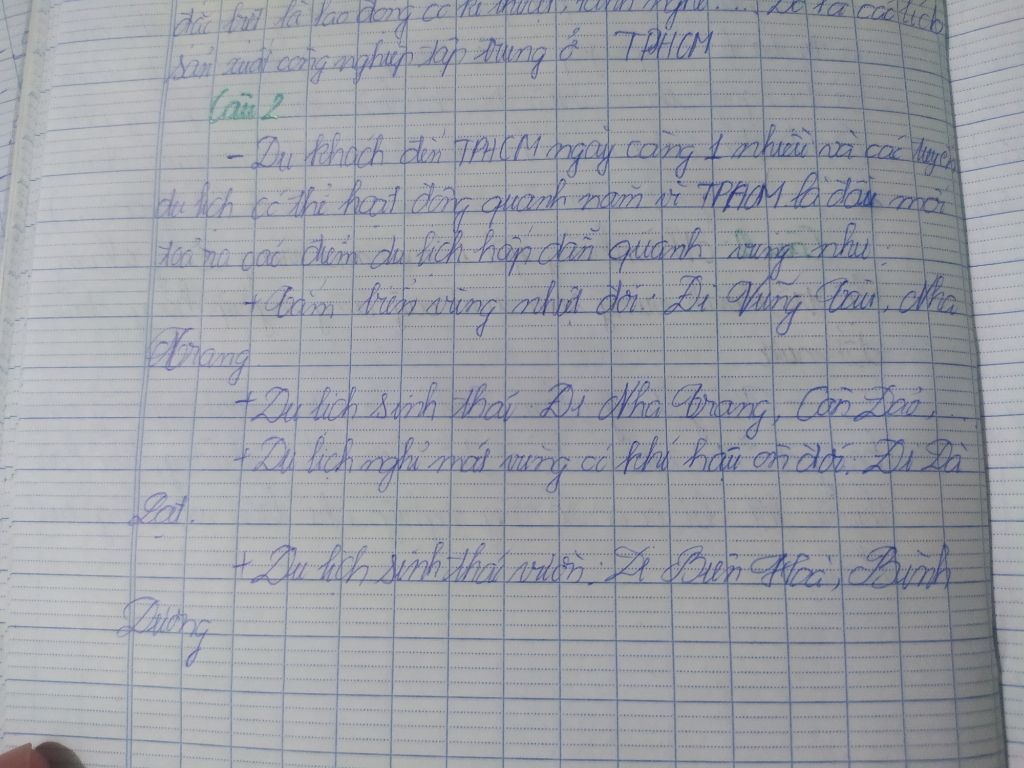 đặc biệt là lao động có kĩ thuật, lành nghề ... Đó là các
sản xuất công nghiệp tập trung ở TPHCM
Câu 2
- Du khách đến TPHCM ngày càng 1 nhiều và các tuyến
du lịch có thể hoạt động quanh năm vì TPHCM là đầu mối
toả ra các điểm du lịch hấp dẫn quanh vùng như:
+ Tắm biển vùng nhiệt đới: Đi Vũng Tàu, Nha
Trang
+ Du lịch sinh thái: Đi Nha Trang, Côn Đảo,
+ Du lịch nghỉ mát vùng có khí hậu ôn đới: Đi Đà
Lạt.
+ Du lịch sinh thái vườn: Đi Biên Hoà, Bình
Dương